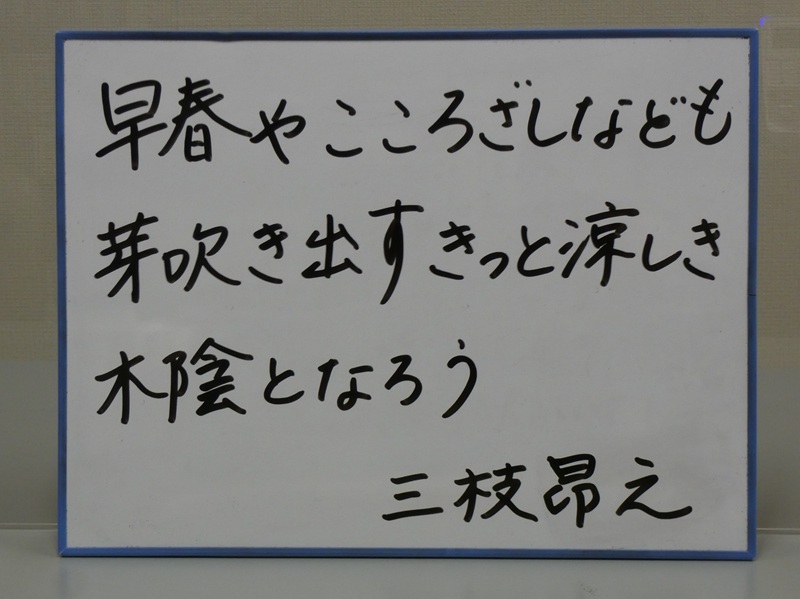 早春やこころざしなども
芽吹き出すきっと涼しき
木陰となろう
三枝昂之